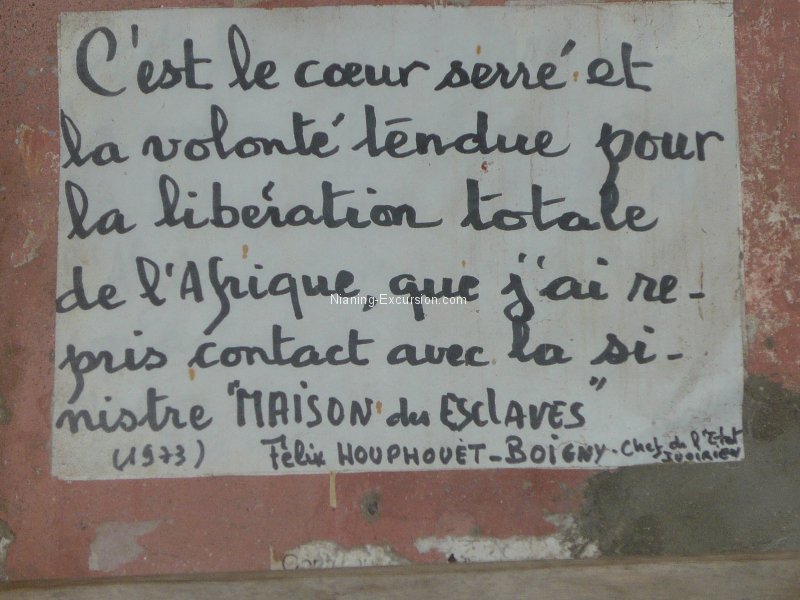 C'est le cœur serré et
la volonté tendue pour
la libération totale
de l'Afrique, que j'ai re-
pris contact avec la si-
nistre "MAISON des ESCLAVES"
(1973) Félix HOUPHOUËT-BOIGNY. Chef de l'Etat
IVOIRIEN
Nianing-Excursion.com